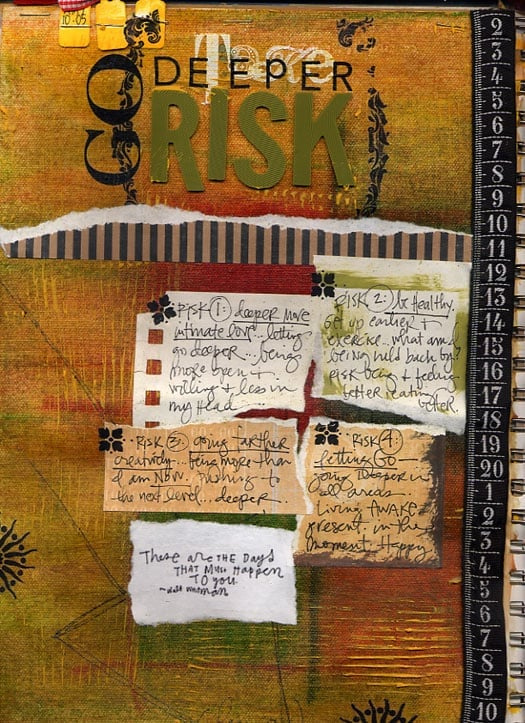 10:05
GO
Take
DEEPER
RISK
RISK 1: deeper more
intimate love... letting
go deeper... being
more open &
willing & less in
my head
RISK 2: be Healthy.
Get up earlier &
exercise... what am I
being held back by?
Risk being & feeling
better eating
better.
RISK 3: Going farther
creatively... being more than
I am NOW. pushing to
the next level... deeper...
RISK 4:
Letting Go
going DEEPER in
all areas
Living AWAKE
present in the
moment. Happy
These are THE DAYS
THAT MUST Happen
TO you.
~Walt Whitman
2
3
4
5
6
7
8
9
10
11
12
13
14
15
16
17
18
19
20
1
2
3
4
5
6
7
8
9
10